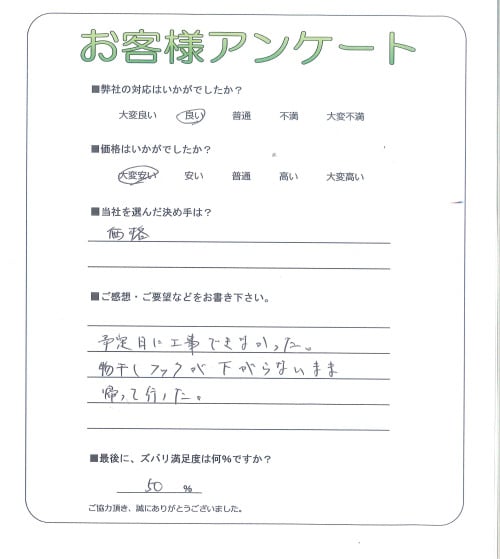 お客様アンケート
■弊社の対応はいかがでしたか？
大変良い 良い 普通 不満 大変不満
■価格はいかがでしたか？
大変安い 安い 普通 高い 大変高い
■当社を選んだ決め手は？
価格
■ご感想・ご要望などをお書き下さい。
予定日に工事できなかった。
物干しフックが下がらないまま
帰って行った。
■最後に、ズバリ満足度は何％ですか？
50 %
ご協力頂き、誠にありがとうございました。